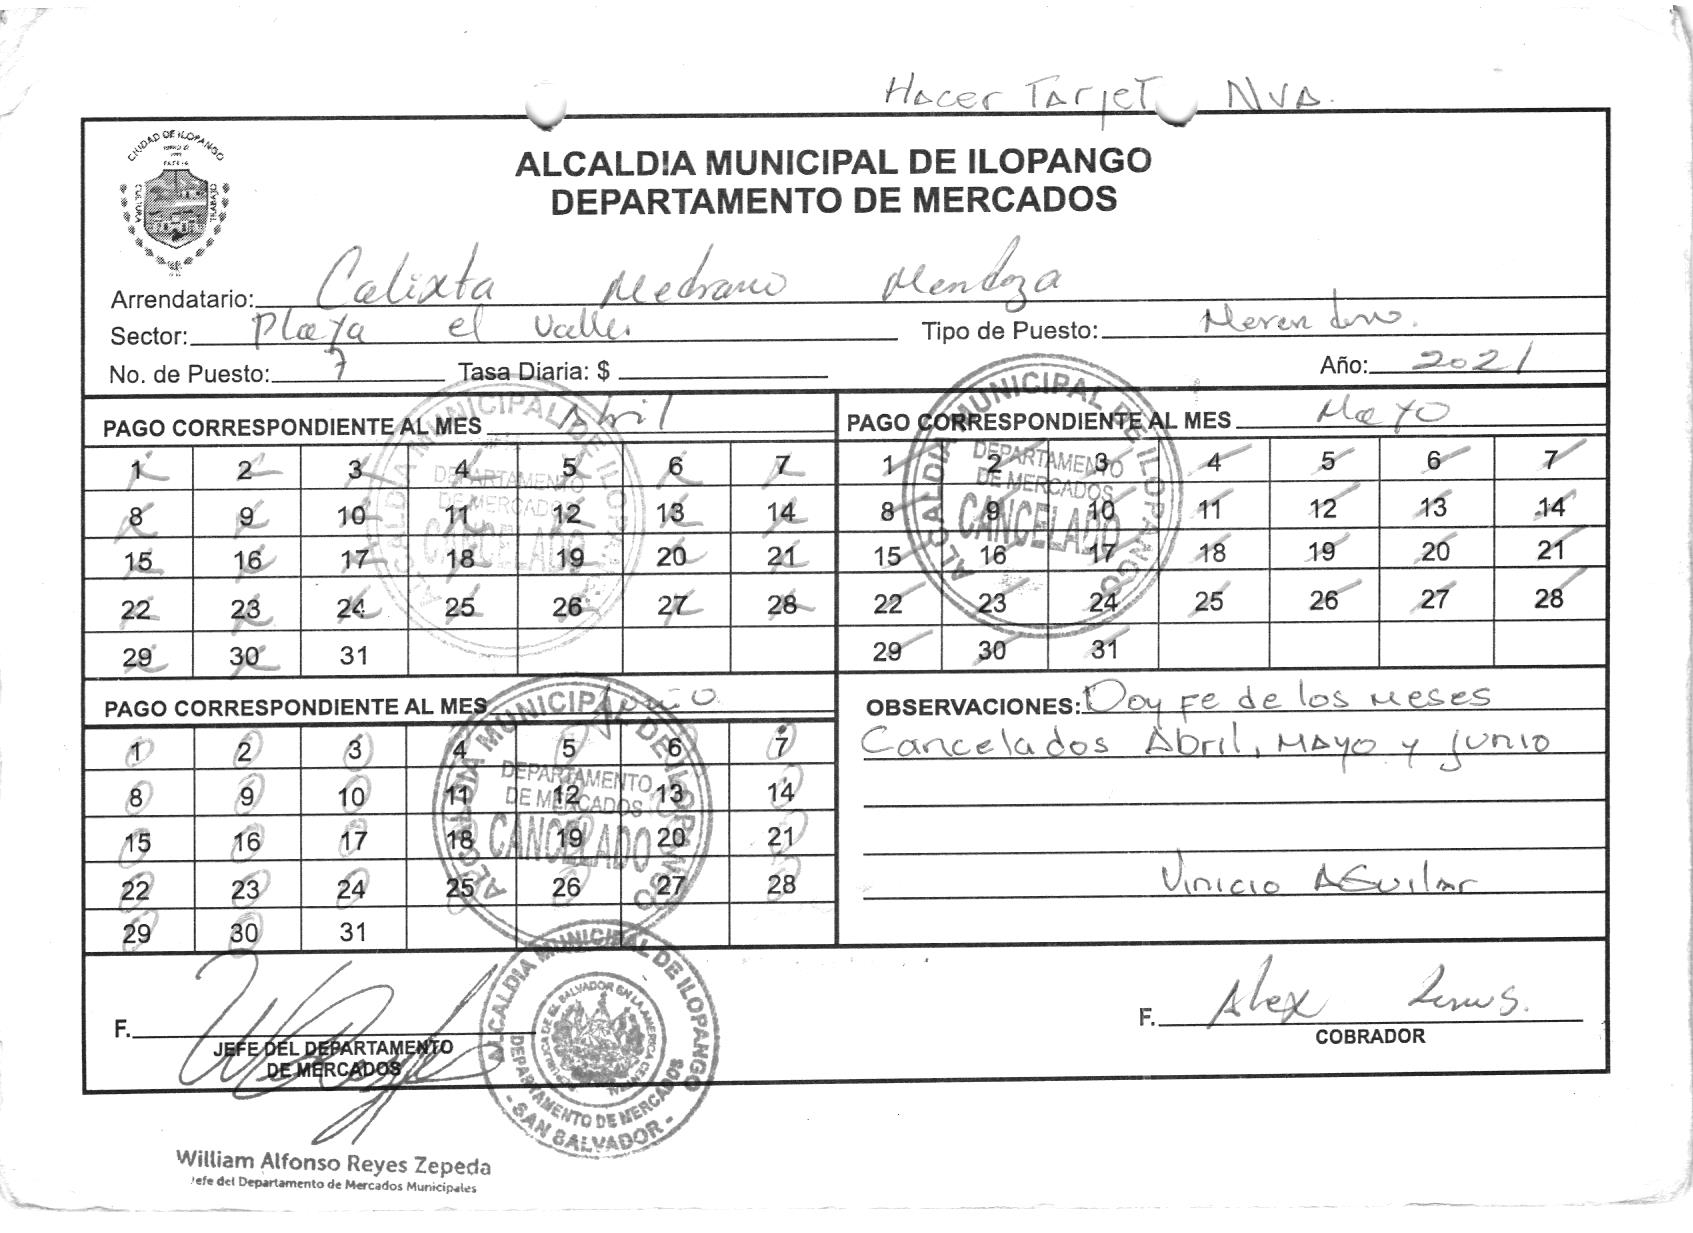 Hacer Tarjet NVA.
CIUDAD DE ILOPANGO
CULTURA
TRABAJO
ALCALDIA MUNICIPAL DE ILOPANGO
DEPARTAMENTO DE MERCADOS
Arrendatario: Calixta Medrano Mendoza
Sector: Playa el Valle. Tipo de Puesto:
No. de Puesto: 7 Tasa Diaria: $ Año: 2021
PAGO CORRESPONDIENTE AL MES Abril
1 2 3 4 5 6 7
8 9 10 11 12 13 14
15 16 17 18 19 20 21
22 23 24 25 26 27 28
29 30 31
ALCALDIA MUNICIPAL DE ILOPANGO
DEPARTAMENTO
DE MERCADOS
CANCELADO
PAGO CORRESPONDIENTE AL MES Mayo
1 2 3 4 5 6 7
8 9 10 11 12 13 14
15 16 17 18 19 20 21
22 23 24 25 26 27 28
29 30 31
ALCALDIA MUNICIPAL DE ILOPANGO
DEPARTAMENTO
DE MERCADOS
CANCELADO
PAGO CORRESPONDIENTE AL MES Junio
1 2 3 4 5 6 7
8 9 10 11 12 13 14
15 16 17 18 19 20 21
22 23 24 25 26 27 28
29 30 31
ALCALDIA MUNICIPAL DE ILOPANGO
DEPARTAMENTO
DE MERCADOS
CANCELADO
OBSERVACIONES: Doy Fe de los Meses
Cancelados Abril, Mayo y Junio
Vinicio Aguilar
F.
JEFE DEL DEPARTAMENTO
DE MERCADOS
ALCALDIA MUNICIPAL DE ILOPANGO
DEPARTAMENTO DE MERCADOS
- SAN SALVADOR -
F. Alex Lemus.
COBRADOR
William Alfonso Reyes Zepeda
Jefe del Departamento de Mercados Municipales